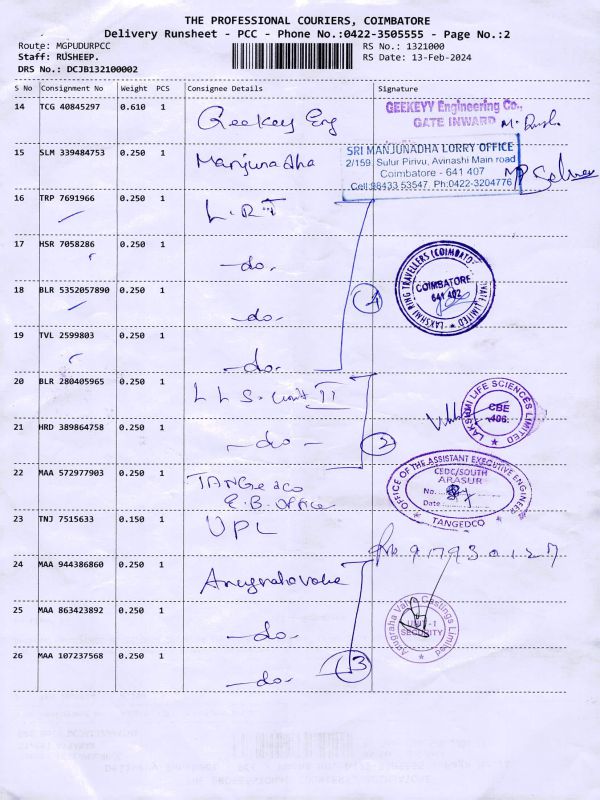 THE PROFESSIONAL COURIERS, COIMBATORE
Delivery Runsheet - PCC - Phone No.:0422-3505555 - Page No.:2
Route: MGPUDURPCC
RS No.: 1321000
Staff: RUSHEEP.
RS Date: 13-Feb-2024
DRS No.: DCJB132100002
S No Consignment No Weight PCS Consignee Details Signature
14 TCG 40845297 0.610 1 Geekey Eng
GEEKEYY Engineering Co.,
GATE INWARD
15 SLM 339484753 0.250 1 Manjunadha
SRI MANJUNADHA LORRY OFFICE
2/159, Sulur Pirivu, Avinashi Main road
Coimbatore - 641 407
Cell:98433 53547, Ph:0422-3204776
16 TRP 7691966 0.250 1 L.R.T
17 HSR 7058286 0.250 1 -do-
18 BLR 5352057890 0.250 1 -do-
4
LAKSHMI RING TRAVELLERS (COIMBATORE) PRIVATE LIMITED
COIMBATORE
641 402
19 TVL 2599803 0.250 1 -do-
20 BLR 280405965 0.250 1 L L S. Unit II
LAKSHMI LIFE SCIENCES LIMITED
CBE
406.
21 HRD 389864758 0.250 1 -do-
2
22 MAA 572977903 0.250 1 TANGedco
E.B. Office
OFFICE OF THE ASSISTANT EXECUTIVE ENGINEER
CEDC/SOUTH
ARASUR
No.
Date
TANGEDCO
23 TNJ 7515633 0.150 1 UPL
24 MAA 944386860 0.250 1 Anugrahavalve
25 MAA 863423892 0.250 1 -do-
Anugraha Valve Castings Limited
UNIT-1
SECURITY
26 MAA 107237568 0.250 1 -do-
3